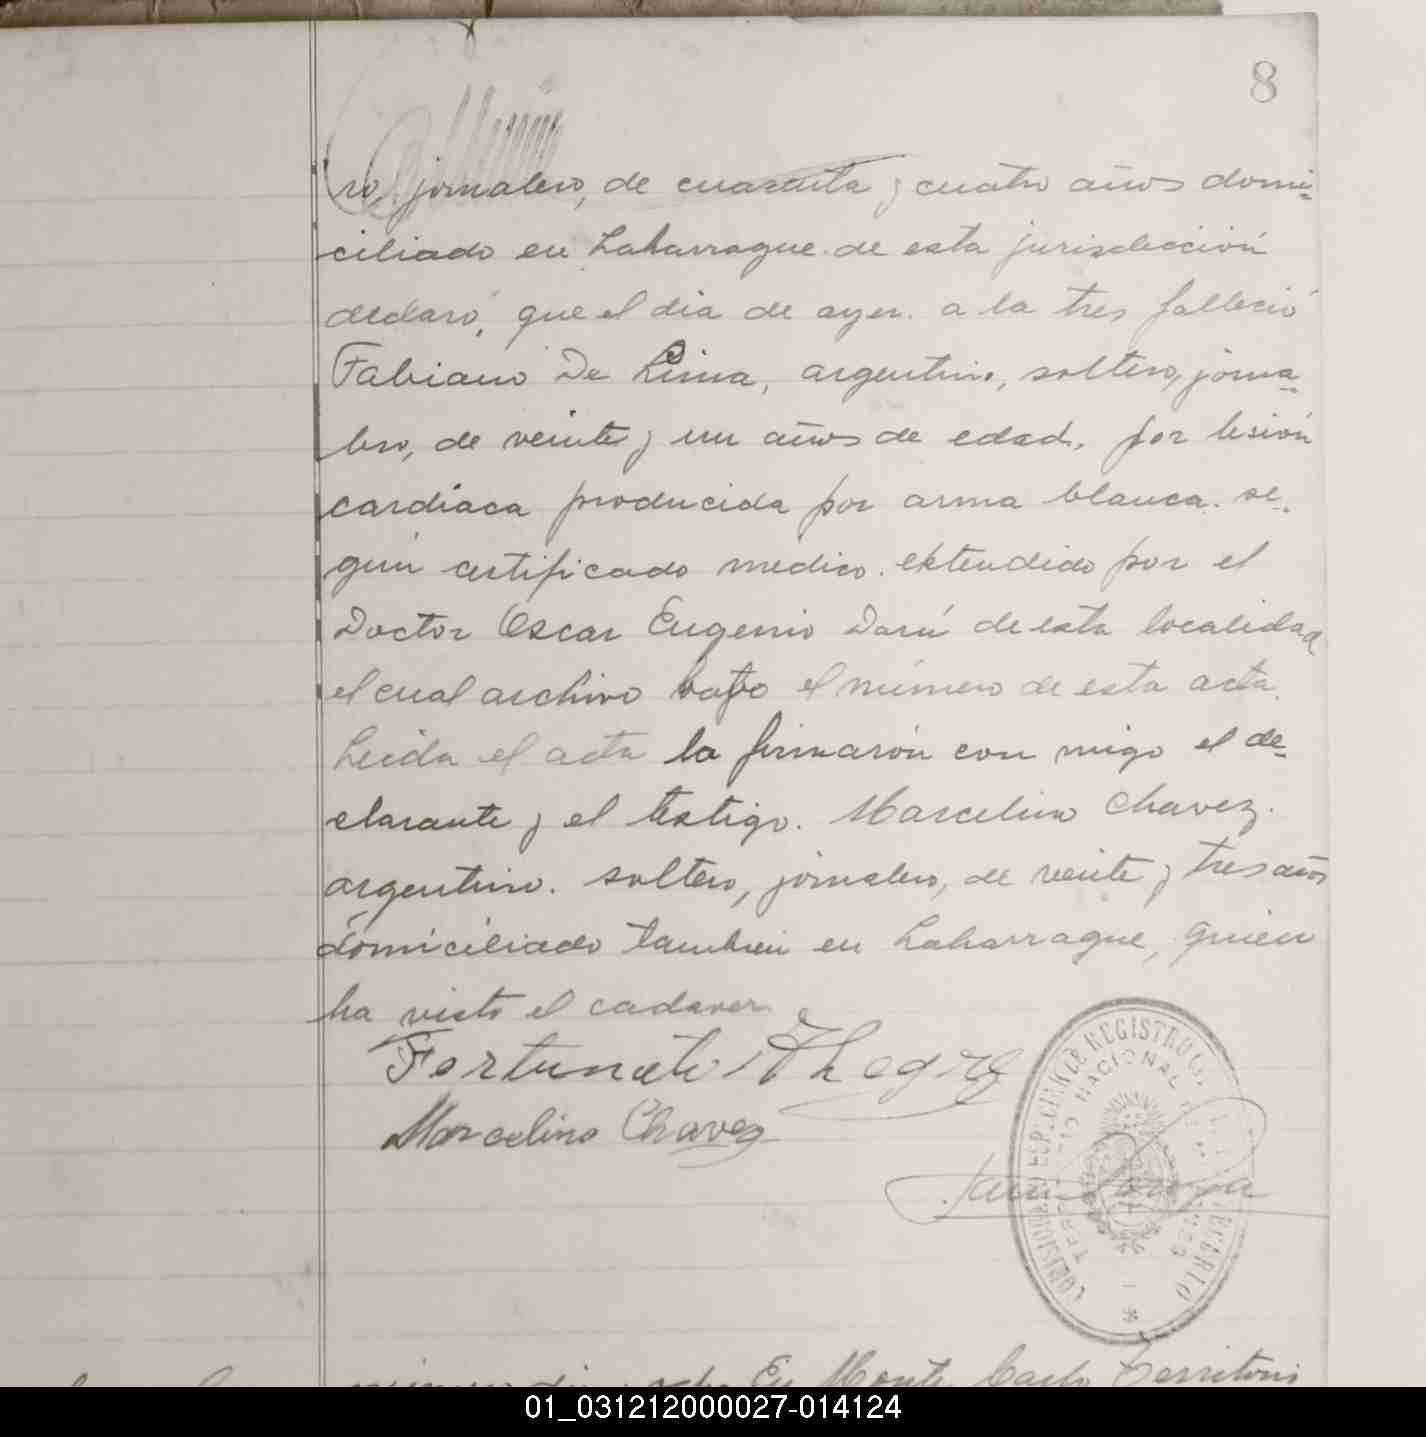 8
ro, jornalero, de cuarenta y cuatro años domi=
ciliado en Laharrague de esta jurisdicción
declaró, que el dia de ayer a la tres falleció
Fabiano De Lima, argentino, soltero, jorna=
lero, de veinte y un años de edad, por lesión
cardiaca producida por arma blanca. se=
gún certificado medico. extendido por el
Doctor Oscar Eugenio Darú de esta localidad
el cual archivo bajo el número de esta acta.
Leida el acta la firmarón con migo el de=
clarante y el testigo. Marcelino Chavez.
argentino. soltero, jornalero, de veinte y tres años
domiciliado tambien en Laharrague, quien
ha visto el cadaver
Fortunato
Marcelino Chavez
REGISTRO
NACIONAL
En Monte Carlo Territorio
01_031212000027-014124